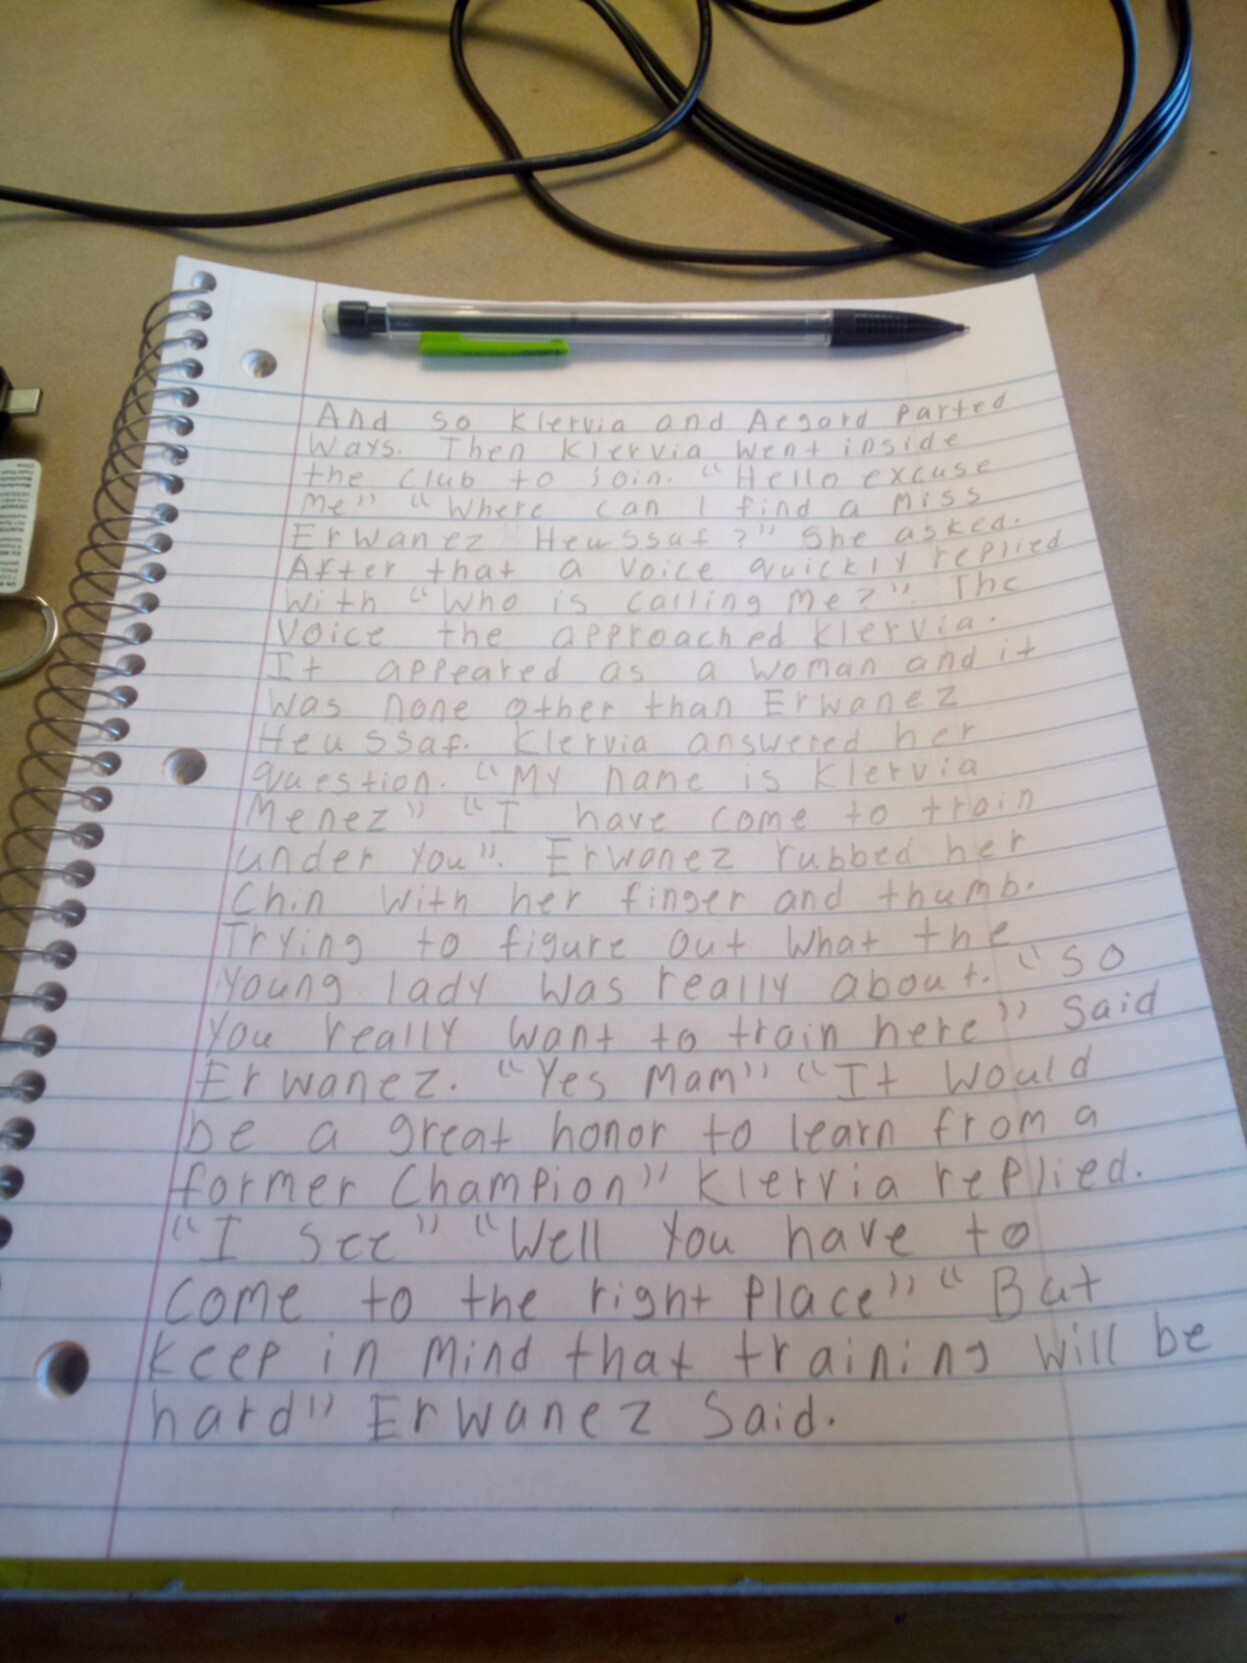 And so Klervia and Aegord parted
ways. Then Klervia went inside
the club to join. "Hello excuse
me" "Where can I find a miss
Erwanez Heussaf?" She asked.
After that a voice quickly replied
with "Who is calling me?". The
voice the approached Klervia.
It appeared as a woman and it
was none other than Erwanez
Heussaf. Klervia answered her
question. "My name is Klervia
Menez" "I have come to train
under you". Erwanez rubbed her
chin with her finger and thumb.
Trying to figure out what the
young lady was really about. "So
you really want to train here" Said
Erwanez. "Yes Mam" "It would
be a great honor to learn from a
former Champion" Klervia replied.
"I see" "Well you have to
come to the right place" "But
keep in mind that training will be
hard" Erwanez Said.